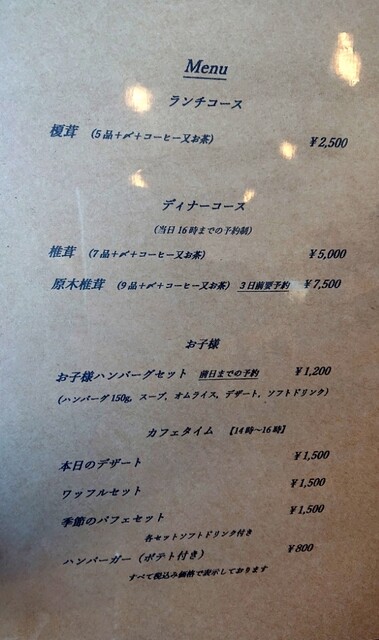 Menu
ランチコース
榎茸 （5品＋〆＋コーヒー又お茶） ¥2,500
ディナーコース
（当日16時までの予約制）
椎茸 （7品＋〆＋コーヒー又お茶） ¥5,000
原木椎茸 （9品＋〆＋コーヒー又お茶） 3日前要予約 ¥7,500
お子様
お子様ハンバーグセット 前日までの予約 ¥1,200
（ハンバーグ150g，スープ、オムライス、デザート、ソフトドリンク）
カフェタイム 【14時～16時】
本日のデザート ¥1,500
ワッフルセット ¥1,500
季節のパフェセット ¥1,500
各セットソフトドリンク付き
ハンバーガー（ポテト付き） ¥800
すべて税込み価格で表示しております